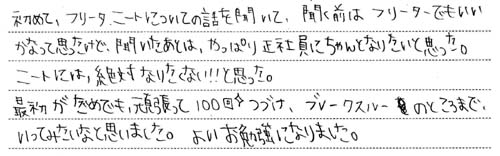 初めて、フリータ、ニートについての話を聞いて、聞く前はフリーターでもいい
かなって思たけど、聞いたあとは、やっぱり正社員にちゃんとなりたいと思った。
ニートには、絶対なりたくない!!と思った。
最初がだめでも、頑張って100回つづけ、ブレークスルーのところまで、
いってみたいなと思いました。よいお勉強になりました。